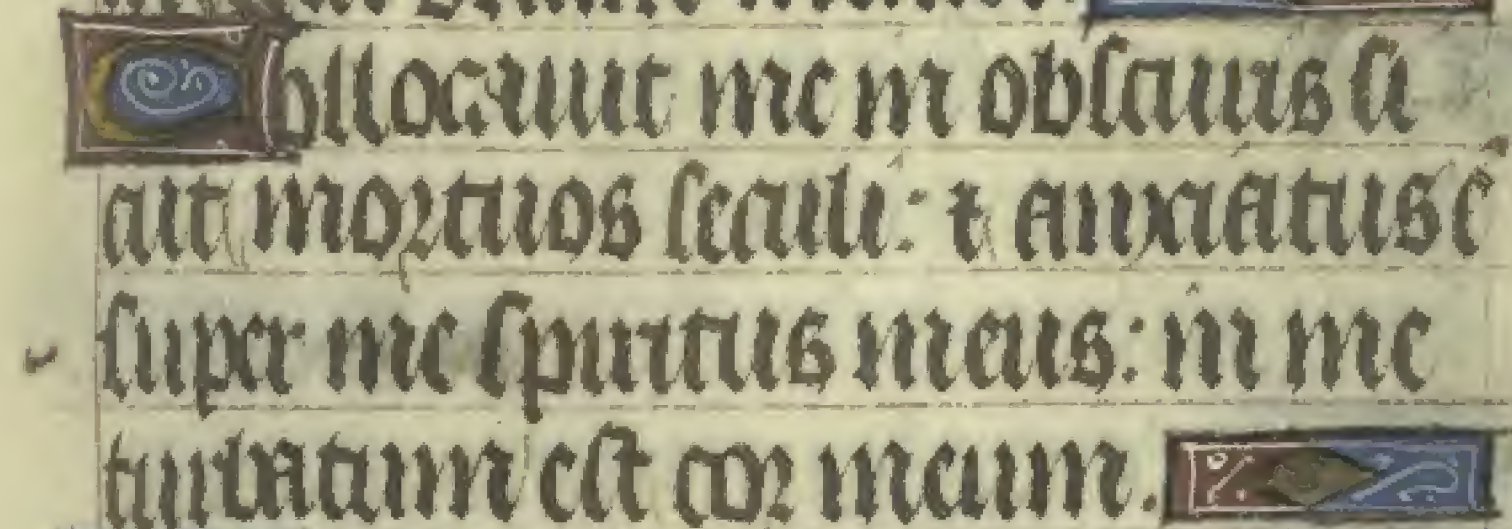 Collocauit me in obscuris si
cut mortuos seculi: ⁊ anxiatus ē
super me spiritus meus: in me
turbatum est cor meum.